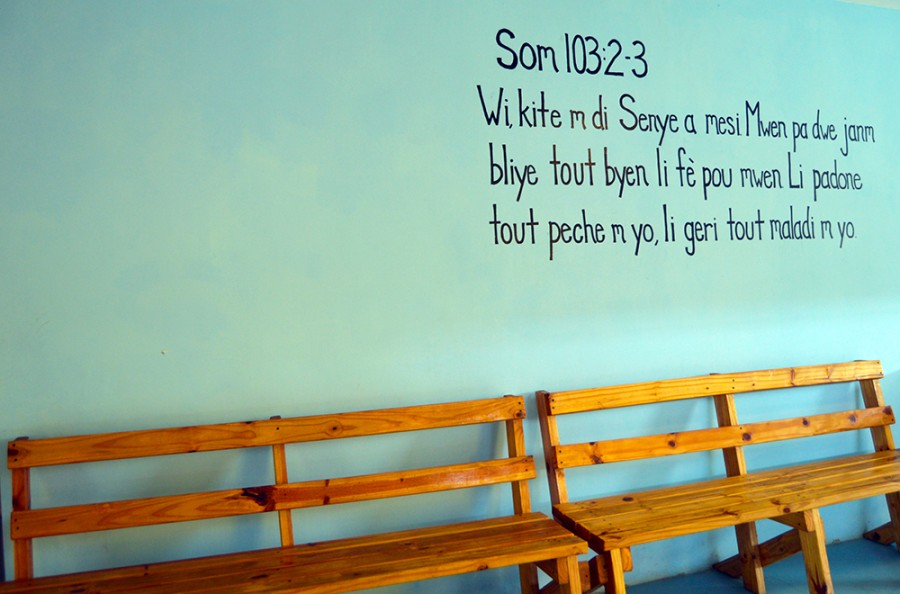 Som 103:2-3
Wi, kite m di Senye a mesi. Mwen pa dwe janm
bliye tout byen li fè pou mwen Li padone
tout peche m yo, li geri tout maladi m yo.